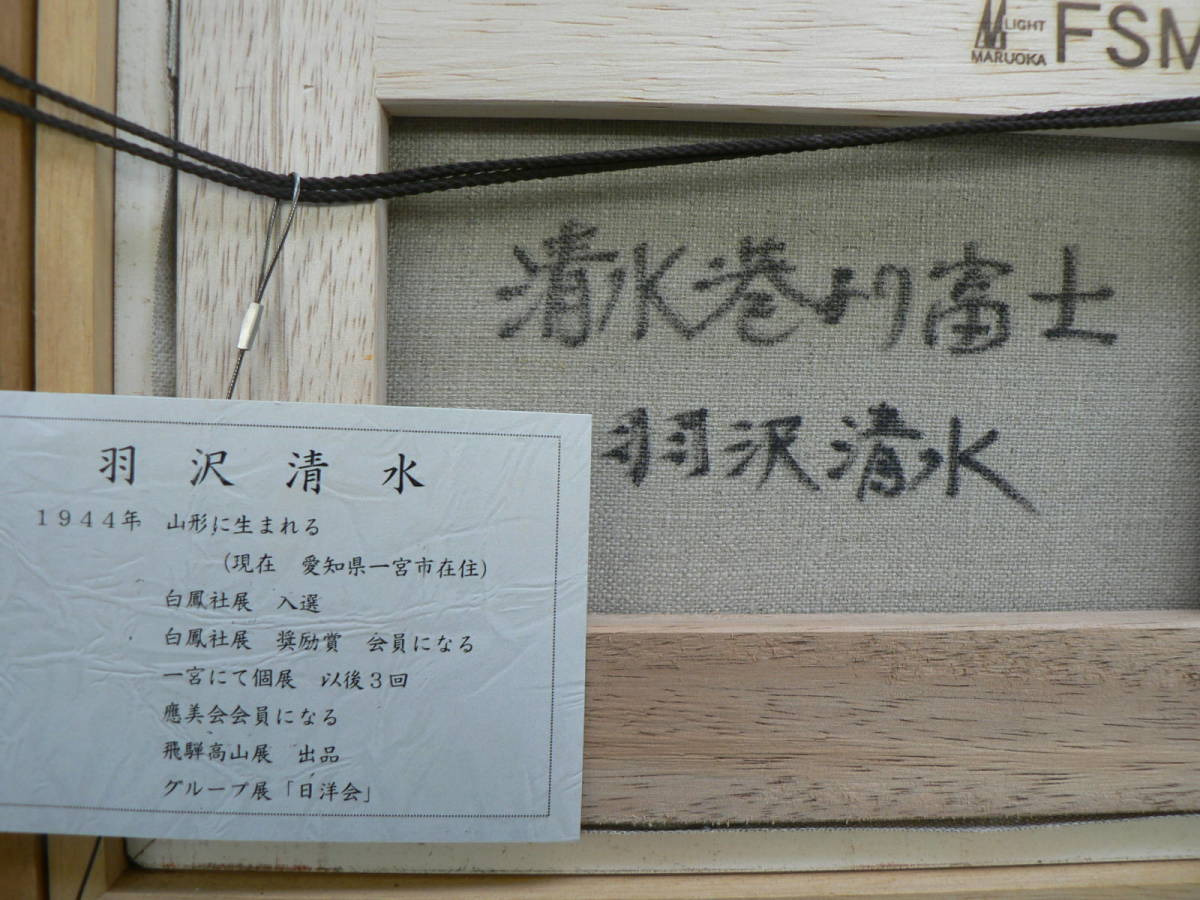 LIGHT
MARUOKA
FSM
清水港より富士
羽沢清水
羽沢清水
1944年 山形に生まれる
(現在 愛知県一宮市在住)
白鳳社展 入選
白鳳社展 奨励賞 会員になる
一宮にて個展 以後3回
應美会会員になる
飛騨高山展 出品
グループ展「日洋会」